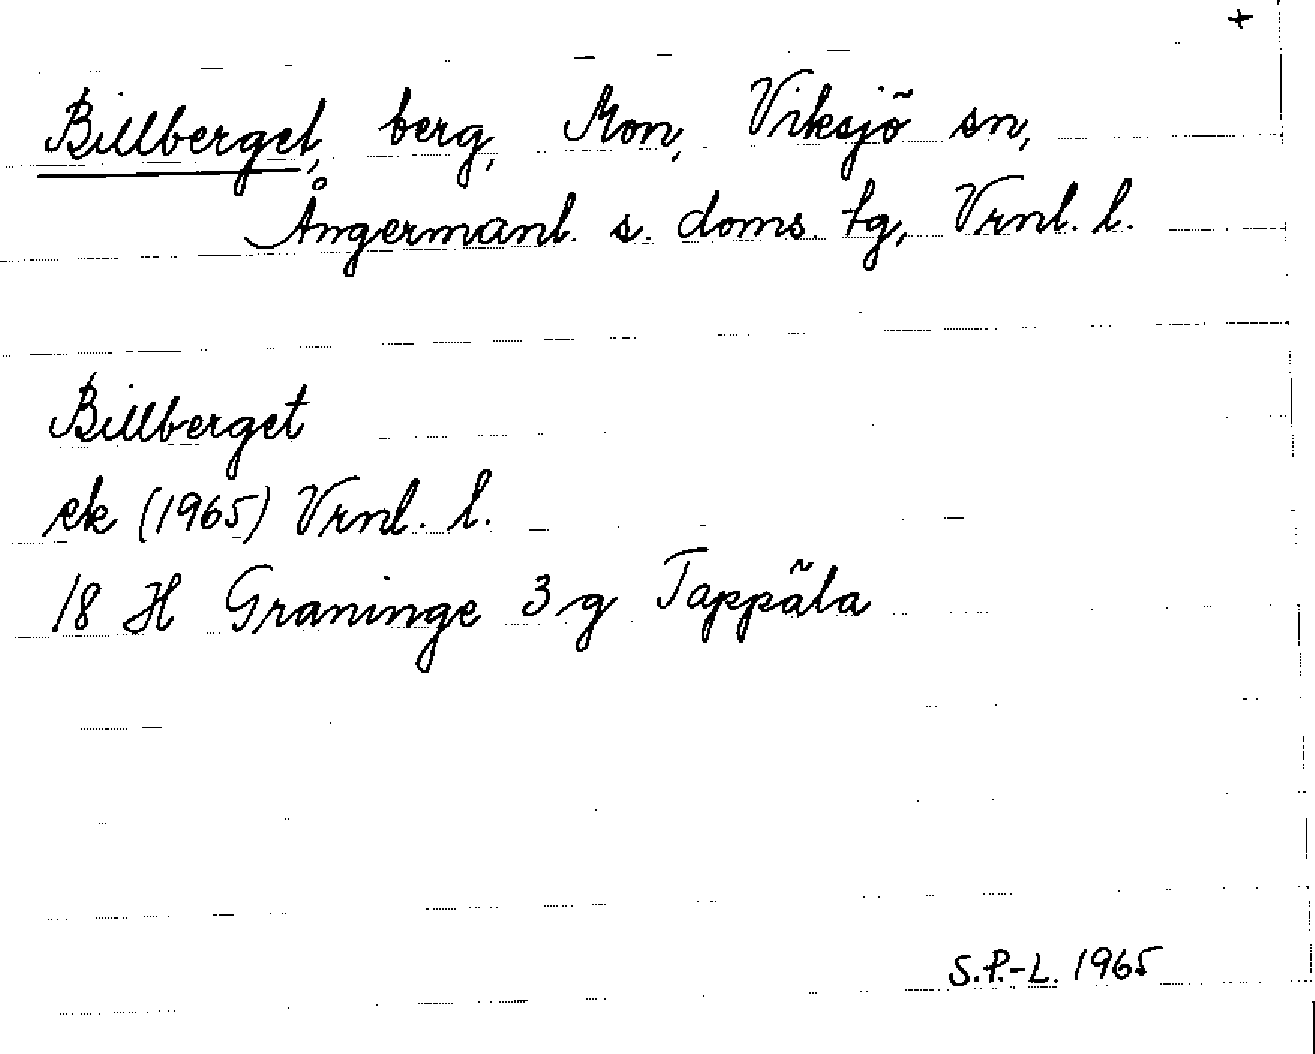 +
Billberget, berg, Mon, Viksjö sn,
Ångermanl. s. doms. tg, Vrnl. l.
Billberget
ek (1965) Vrnl. l.
18 H Graninge 3 g Tappåla
S.P.-L. 1965